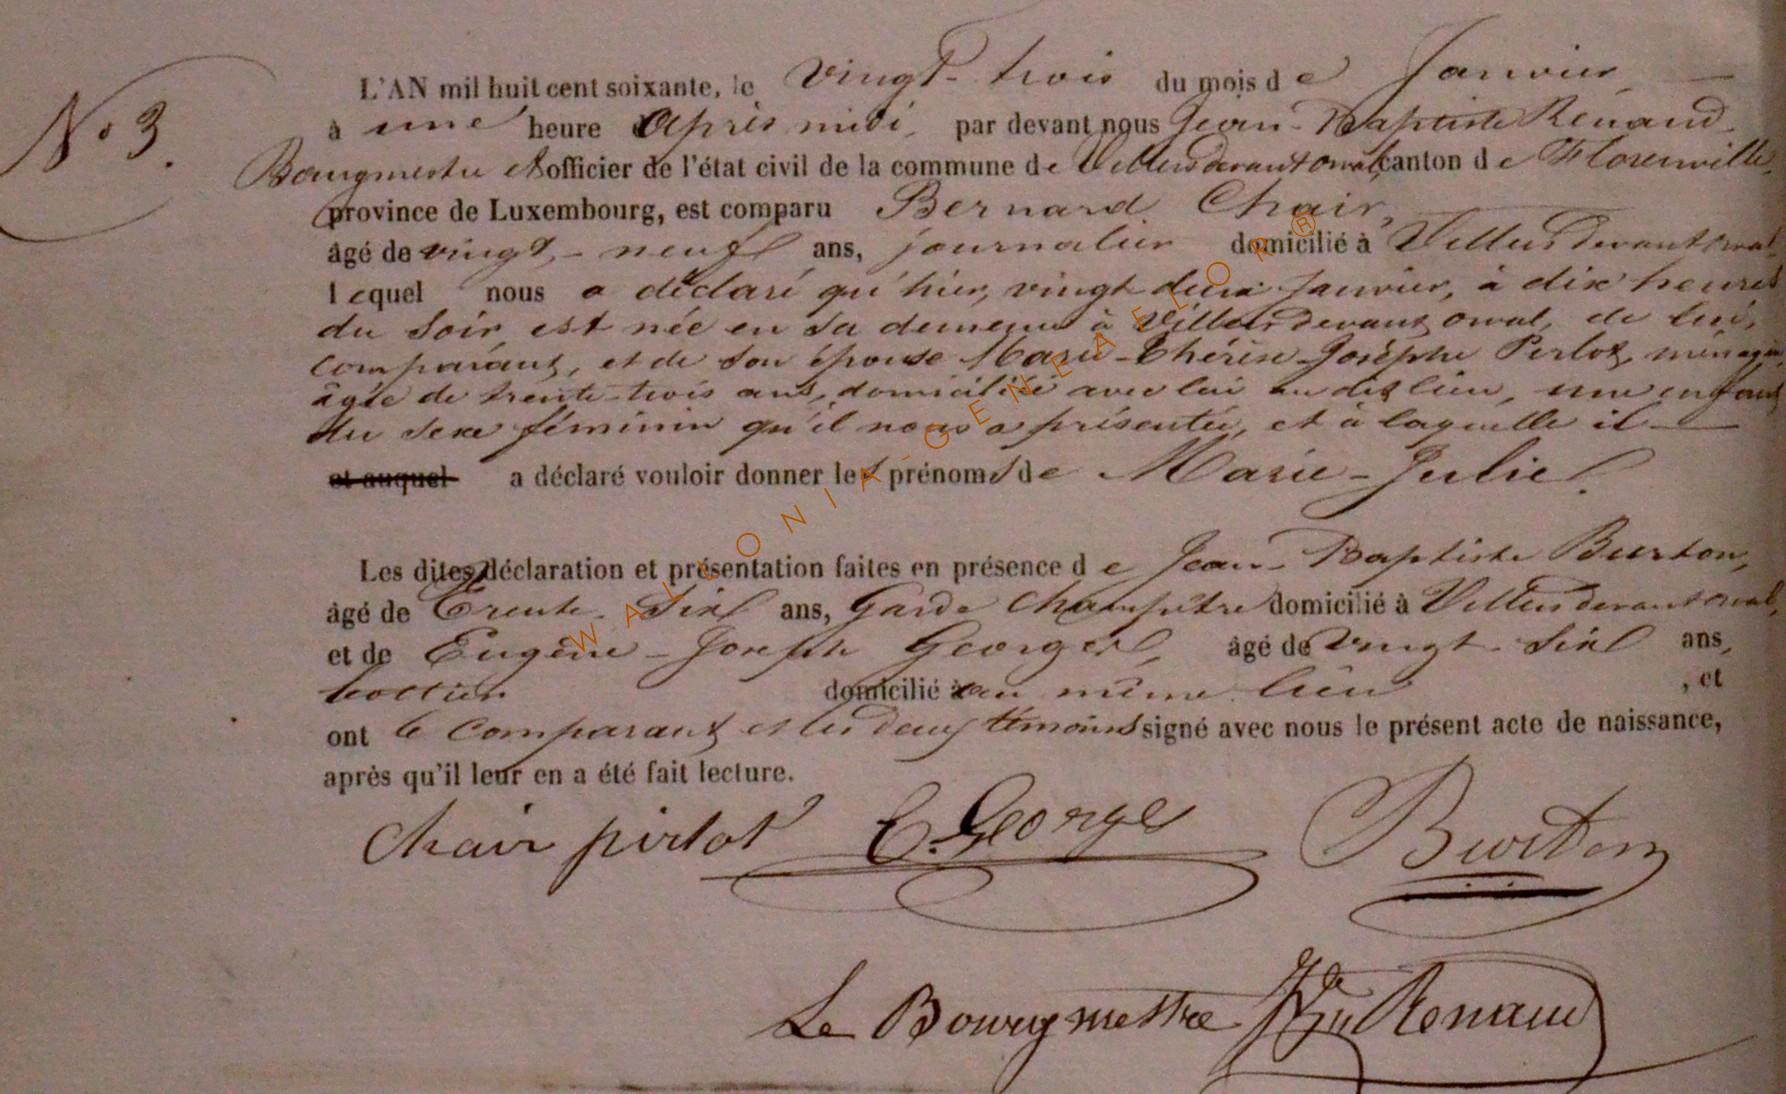 N° 3.
L'AN mil huit cent soixante, le vingt-trois du mois de Janvier
à une heure après midi, par devant nous Jean-Baptiste Renaud
Bourgmestre et officier de l'état civil de la commune de Villers devant orval, canton de Florenville,
province de Luxembourg, est comparu Bernard Chair,
âgé de vingt-neuf ans, journalier domicilié à Villers devant orval,
lequel nous a déclaré qu'hier, vingt deux Janvier, à dix heures
du soir, est née en sa demeure à Villers devant orval, de lui,
comparant, et de son épouse Marie-Thérèse-Josèphe Perlot, ménagère
âgée de trente-trois ans, domiciliée avec lui au dit lieu, une enfant
du sexe féminin qu'il nous a présentée, et à laquelle il
et auquel a déclaré vouloir donner les prénoms de Marie-Julie.
Les dites déclaration et présentation faites en présence de Jean-Baptiste Burton,
âgé de Trente-Six ans, Garde Champêtre domicilié à Villers devant orval,
et de Eugène-Joseph Georges, âgé de vingt-six ans,
domicilié au même lieu, et
ont le comparant et les deux témoins signé avec nous le présent acte de naissance,
après qu'il leur en a été fait lecture.
Chair pirlot E. George Burton
Le Bourgmestre Renaud
WALLONIA-GENEAELOR®